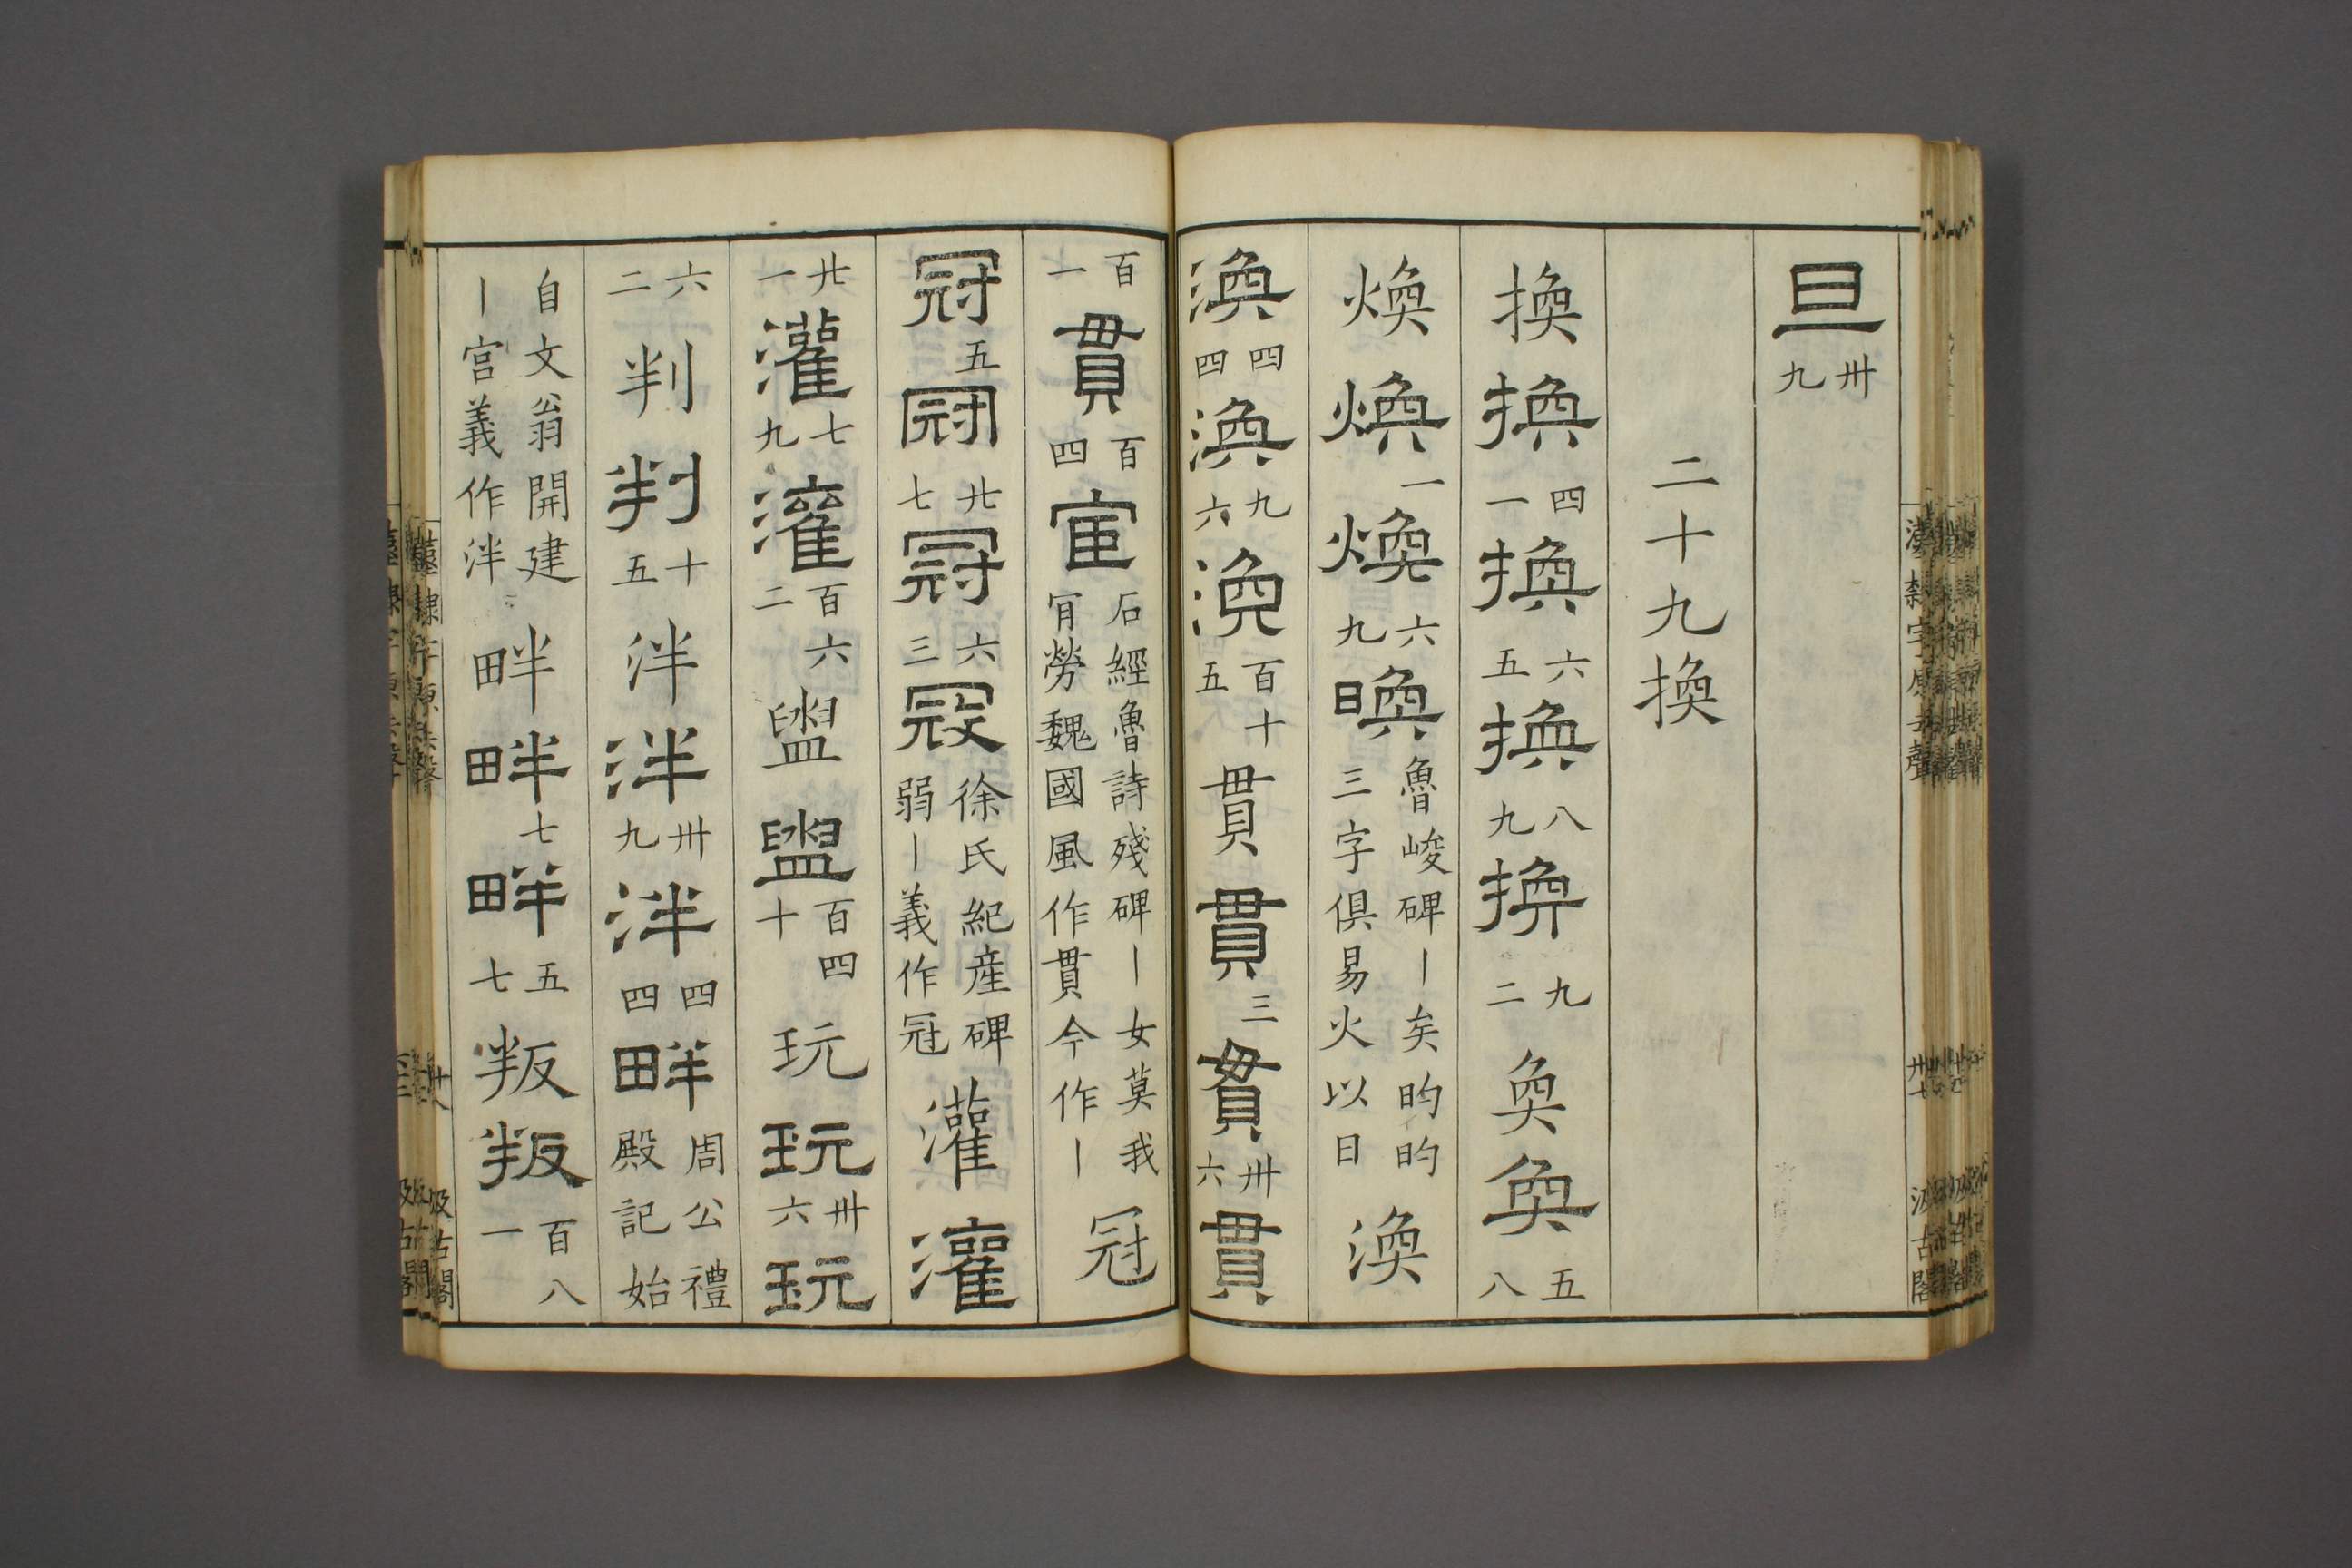 旦 卅九
二十九換
換 換 四一 換 六五 換 八九 換 九二 奐 奐 五八
煥 煥 一 煥 六九 暎 魯峻碑丨矣昀昀三字俱易火以日 渙
渙 四四 渙 九六 渙 百十五 貫 貫 三 貫 卅六 貫
百一 貫 百四 宦 石經魯詩殘碑丨女莫我肎勞魏國風作貫今作丨 冠
冠 五 冠 廿七 冠 六三 冠 徐氏紀産碑弱丨義作冠 灌 灌
廿一 灌 七九 灌 百六二 盥 盥 百四十 玩 玩 卅六 玩
六二 判 判 十五 泮 泮 卅九 泮 四四 畔 周公禮殿記始
自文翁開建丨宮義作泮 畔 畔 七 畔 五七 叛 叛 百八一
漢隸字原去聲 卅七 汲古閣